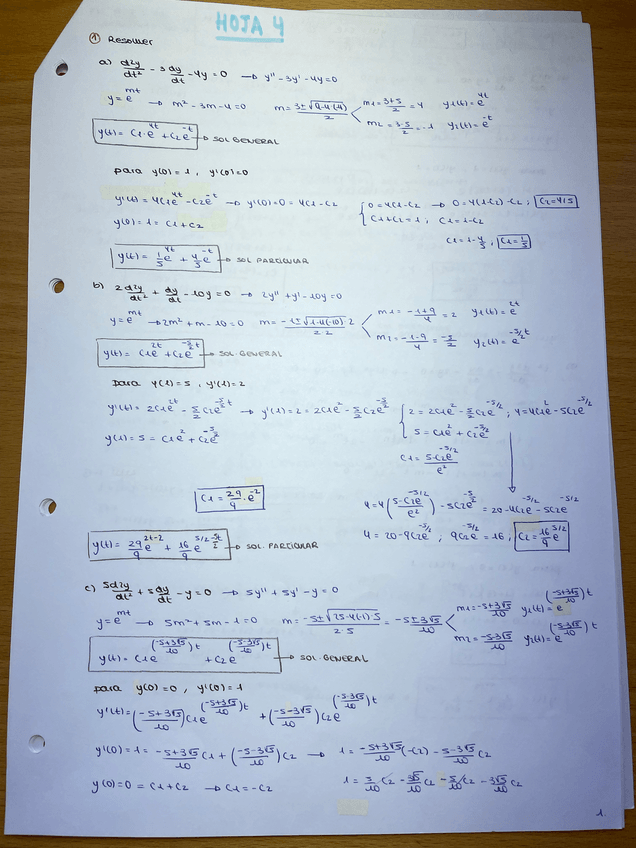 HOJA 4
① Resolver
a) d²y/dt² - 3 dy/dt - 4y = 0 → y'' - 3y' - 4y = 0
y = e^mt → m² - 3m - 4 = 0   m = 3±√(9-4·(-4))/2   m1 = 3+5/2 = 4   y1(t) = e^4t
m2 = 3-5/2 = -1   y2(t) = e^-t
y(t) = C1·e^4t + C2e^-t → SOL GENERAL
para y(0) = 1, y'(0) = 0
y'(t) = 4C1e^4t - C2e^-t → y'(0) = 0 = 4C1 - C2   0 = 4C1 - C2 → 0 = 4(1-C2) - C2; C2 = 4/5
y(0) = 1 = C1 + C2   C1 + C2 = 1; C1 = 1 - C2
C1 = 1 - 4/5; C1 = 1/5
y(t) = 1/5 e^4t + 4/5 e^-t → SOL PARTICULAR
b) 2d²y/dt² + dy/dt - 10y = 0 → 2y'' + y' - 10y = 0
y = e^mt → 2m² + m - 10 = 0   m = -1±√(1-4(-10)·2)/2·2   m1 = -1+9/4 = 2   y1(t) = e^2t
m2 = -1-9/4 = -5/2   y2(t) = e^-5/2t
y(t) = C1e^2t + C2e^-5/2t → SOL GENERAL
para y(1) = 5, y'(1) = 2
y'(t) = 2C1e^2t - 5/2 C2e^-5/2t → y'(1) = 2 = 2C1e² - 5/2 C2e^-5/2   2 = 2C1e² - 5/2 C2e^-5/2; 4 = 4C1e² - 5C2e^-5/2
y(1) = 5 = C1e² + C2e^-5/2   5 = C1e² + C2e^-5/2
C1 = 5-C2e^-5/2 / e²
C1 = 29/9 · e^-2   4 = 4(5-C2e^-5/2 / e²) - 5C2e^-5/2 = 20 - 4C2e^-5/2 - 5C2e^-5/2
4 = 20 - 9C2e^-5/2; 9C2e^-5/2 = 16; C2 = 16/9 e^5/2
y(t) = 29/9 e^2t-2 + 16/9 e^5/2-5t/2 → SOL. PARTICULAR
c) 5d²y/dt² + 5dy/dt - y = 0 → 5y'' + 5y' - y = 0
y = e^mt → 5m² + 5m - 1 = 0   m = -5±√(25-4(-1)·5)/2·5 = -5±3√5/10   m1 = -5+3√5/10   y1(t) = e^(-5+3√5/10)t
m2 = -5-3√5/10   y2(t) = e^(-5-3√5/10)t
y(t) = C1e^(-5+3√5/10)t + C2e^(-5-3√5/10)t → SOL. GENERAL
para y(0) = 0, y'(0) = 1
y'(t) = (-5+3√5/10)C1e^(-5+3√5/10)t + (-5-3√5/10)C2e^(-5-3√5/10)t
y'(0) = 1 = -5+3√5/10 C1 + (-5-3√5/10)C2 → 1 = -5+3√5/10(-C2) - 5-3√5/10 C2
y(0) = 0 = C1 + C2 → C1 = -C2   1 = 5/10 C2 - 3√5/10 C2 - 5/10 C2 - 3√5/10 C2
1.